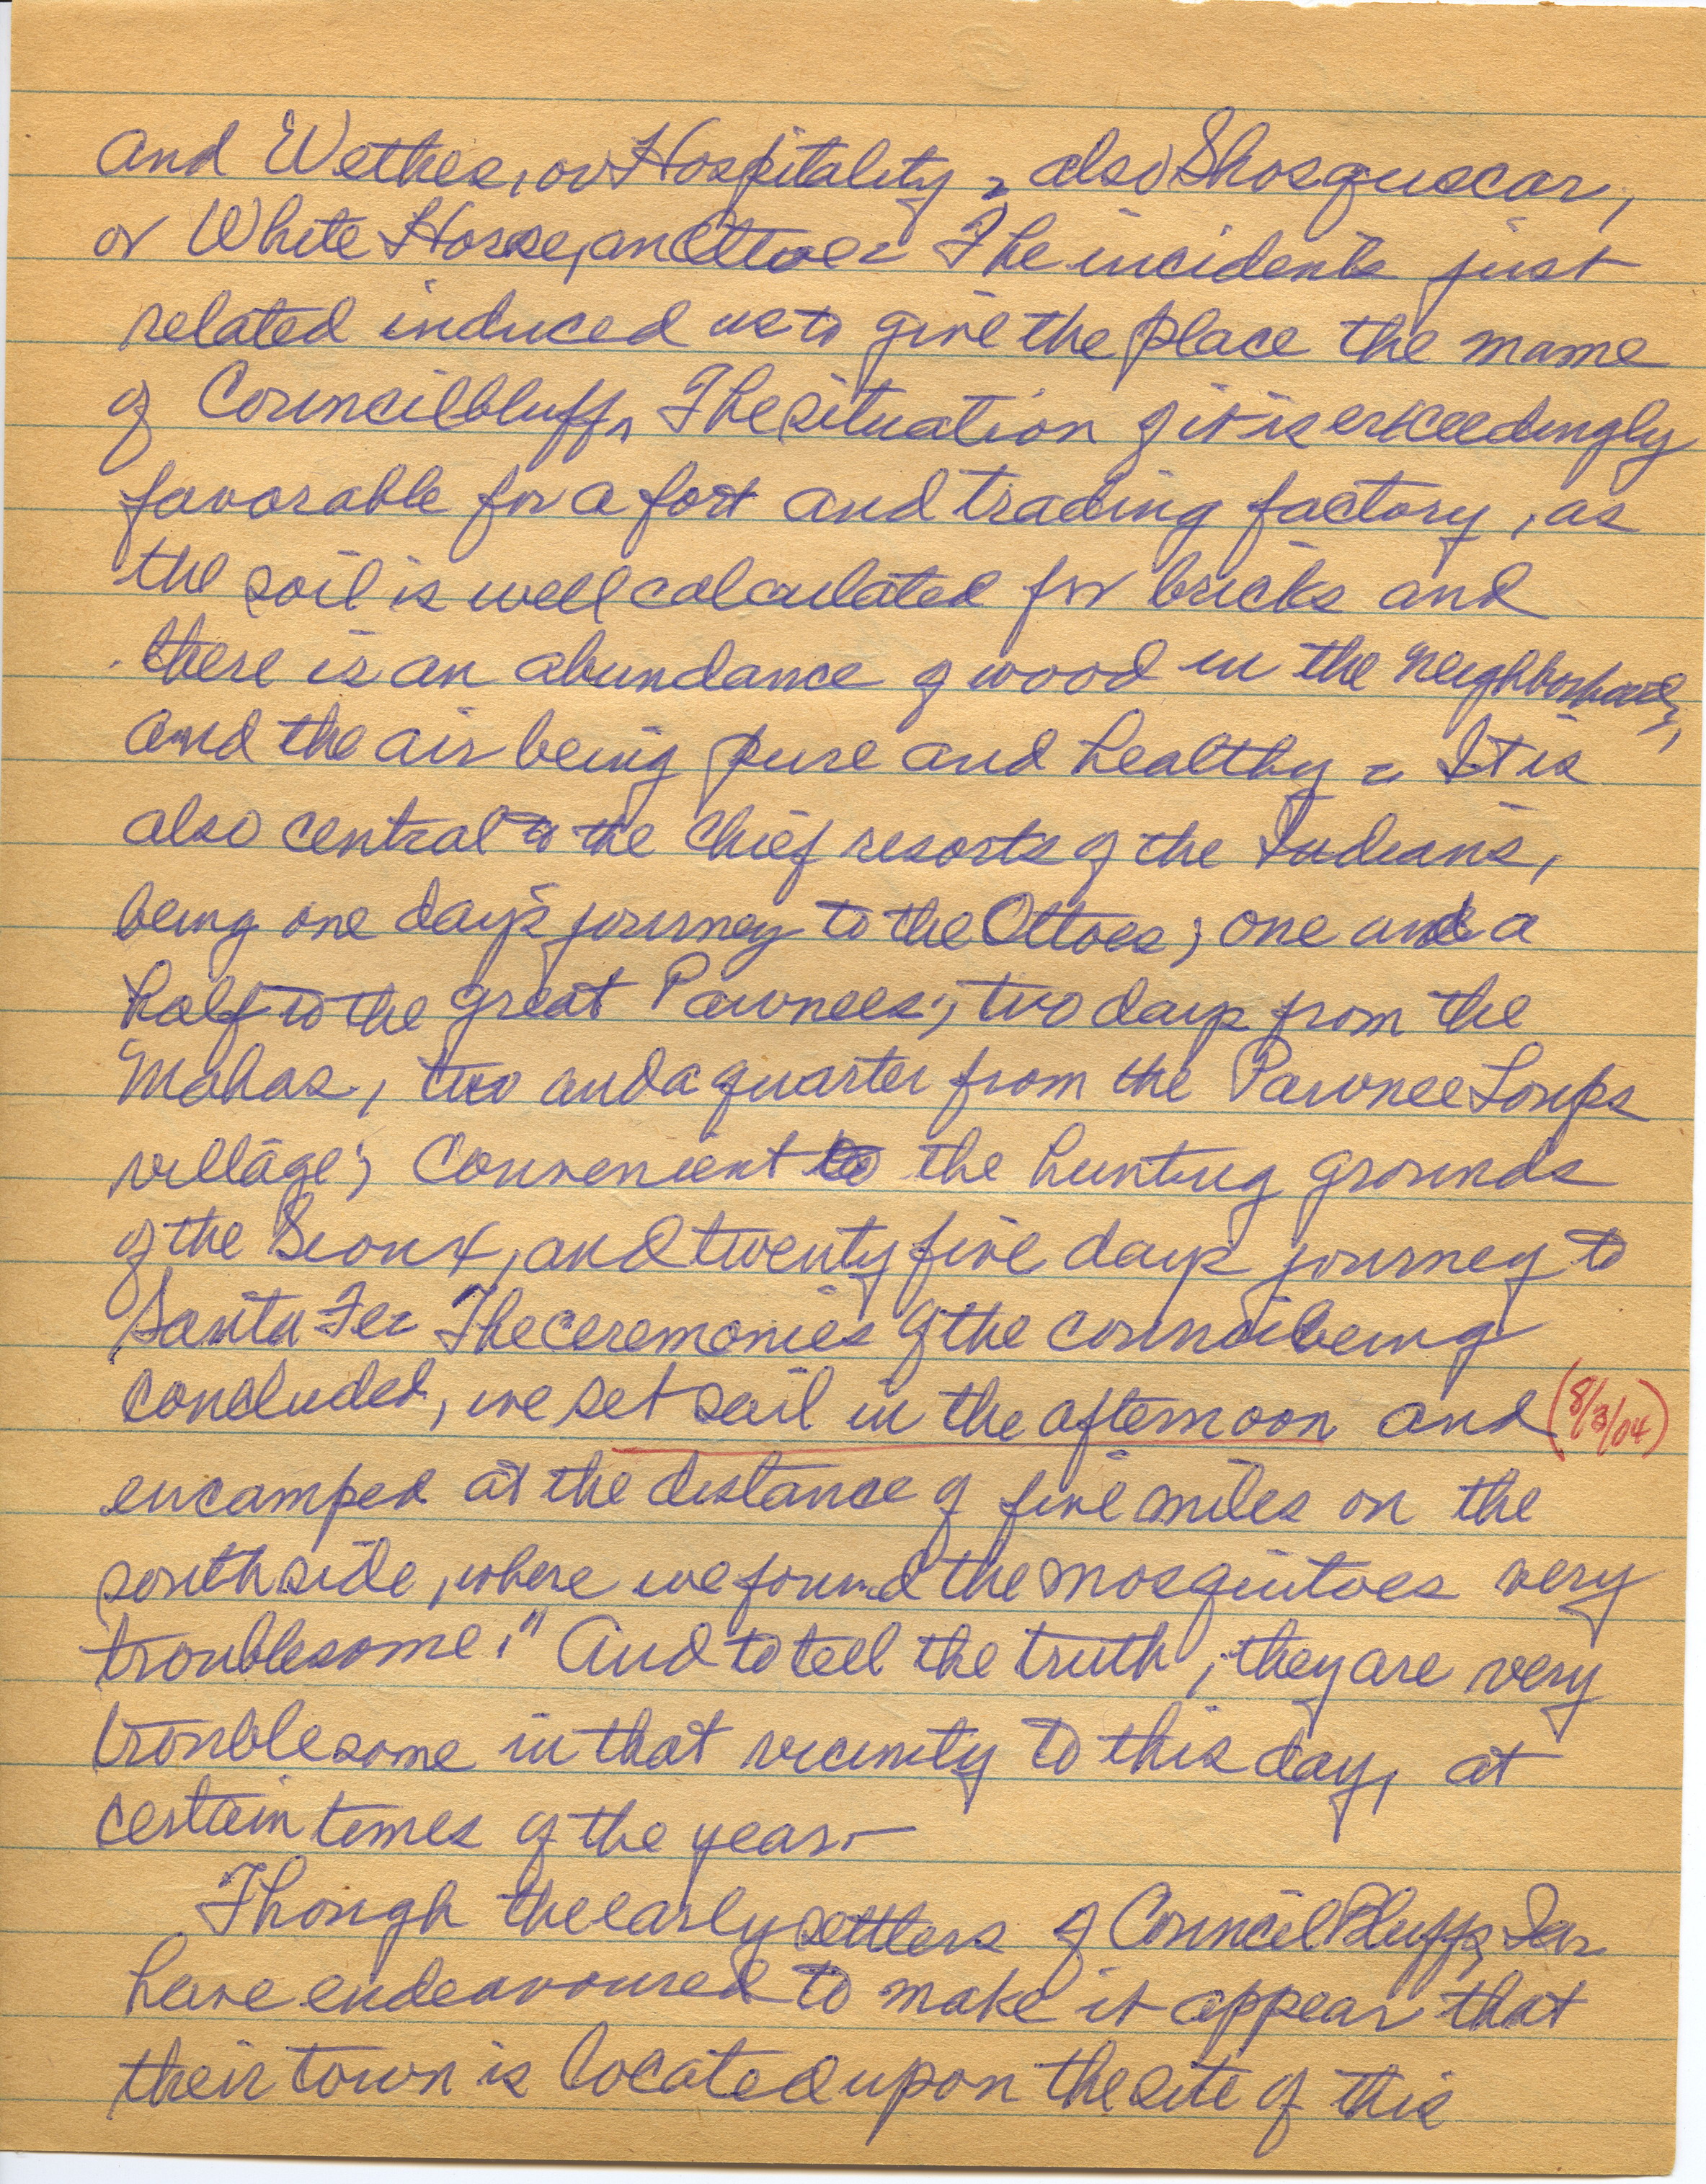 and Wethea, or Hospitality, also Shosguscar,
or White Horse, an Ottoe. The incidents just
related induced us to give the place the name
of Councilbluff, The situation of it is exceedingly
favorable for a fort and trading factory, as
the soil is well calculated for bricks and
there is an abundance of wood in the neighborhood,
and the air being pure and healthy. It is
also central to the chief resorts of the Indians,
being one day's journey to the Ottoes; one and a
half to the great Pawnees; two days from the
Mahas, two and a quarter from the Pawnee Loups
village; Convenient to the hunting grounds
of the Sioux, and twenty five days journey to
Santa Fe. The ceremonies of the council being
concluded, we set sail in the afternoon and (8/3/04)
encamped at the distance of five miles on the
south side, where we found the mosquitoes very
troublesome." And to tell the truth, they are very
troublesome in that vicinity to this day, at
certain times of the year.—
Though the early settlers of Council Bluffs, Ia.
have endeavoured to make it appear that
their town is located upon the site of this